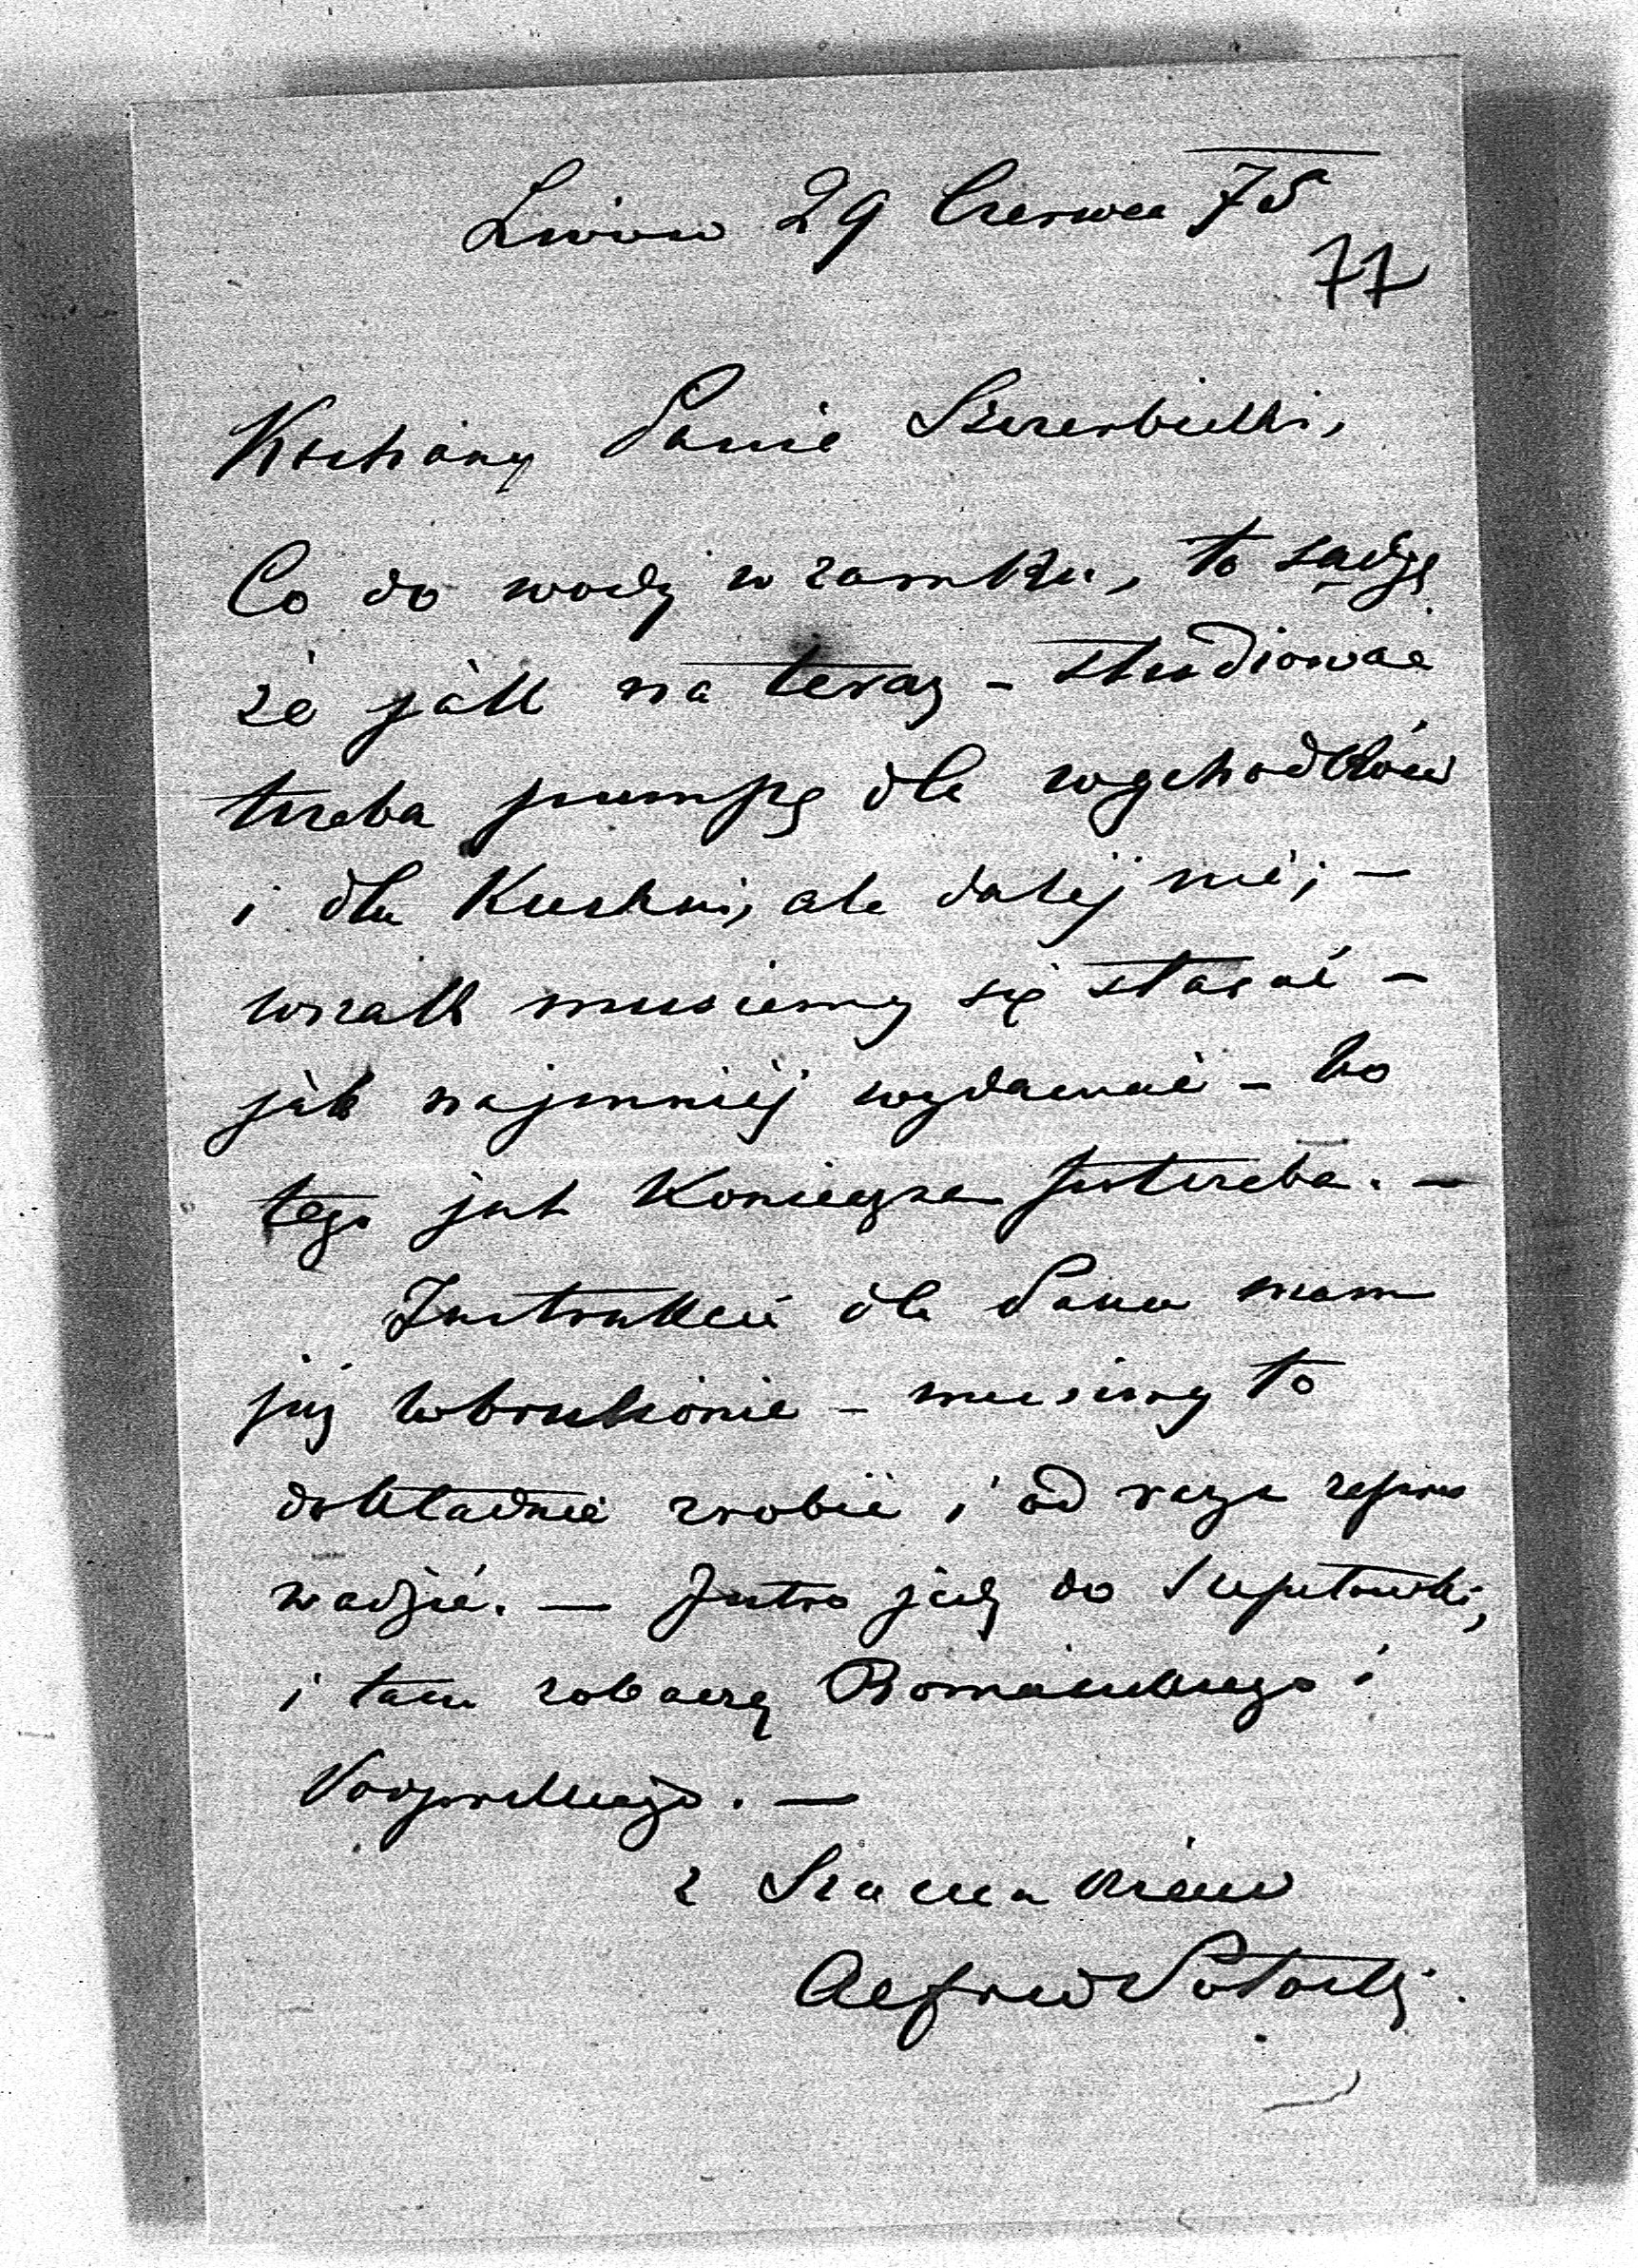 Lwów 29 Czerwca 75
77
Kochany Panie Szczerbicki,
Co do wody w zamku, to sądzę
że jak na teraz - studiować
trzeba pumpę dla wychodków
i dla Kuchni, ale dalej nié; -
wszak musiemy się starać -
jak najmniéj wydawać - bo
tego jest Konieczna potrzeba. -
Instrukcie dla Pana mam
już - musimy to
dokładnie zrobić i od razu zapro
wadzić. - Jutro jadę do Szepetówki,
i tam zobaczę i
z Szacunkiem
Alfred Potocki.